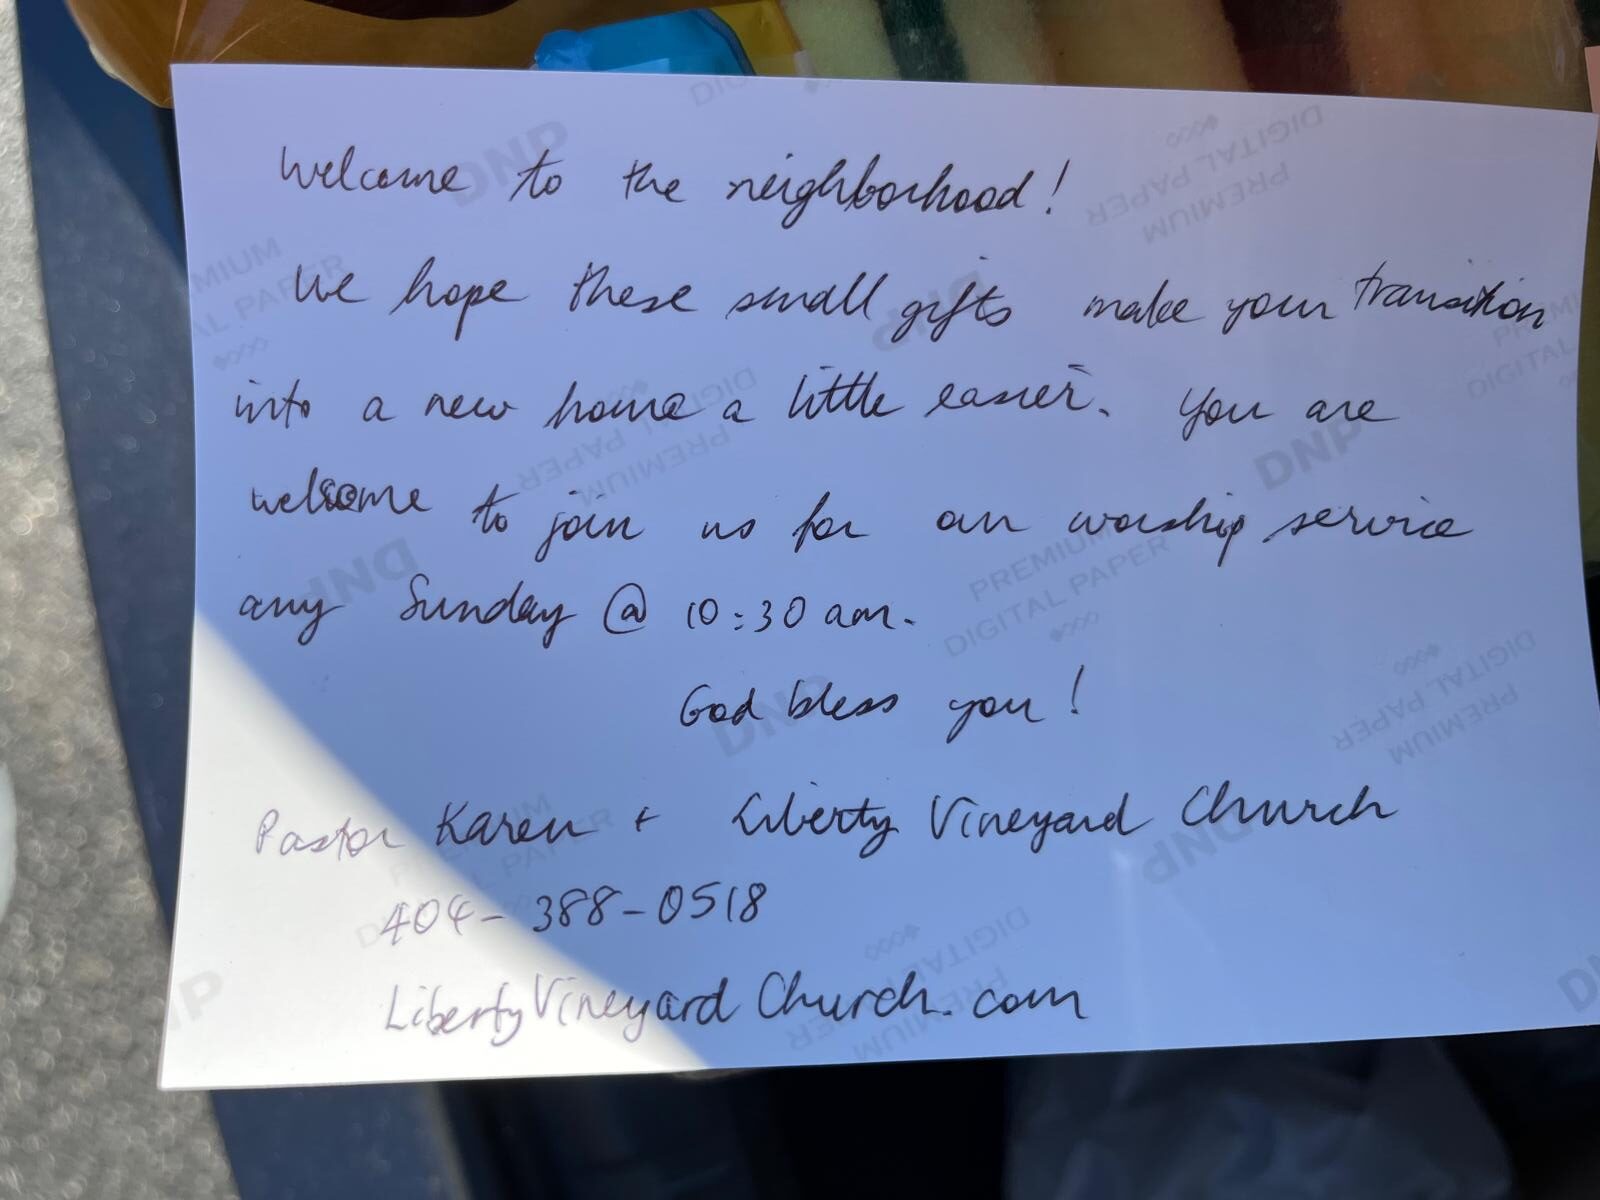 Welcome to the neighborhood!
We hope these small gifts make your transition
into a new home a little easier. You are
welcome to join us for our worship service
any Sunday @ 10:30 am.
God bless you!
Pastor Karen + Liberty Vineyard Church
404-388-0518
LibertyVineyardChurch.com
DNP
PREMIUM
DIGITAL PAPER